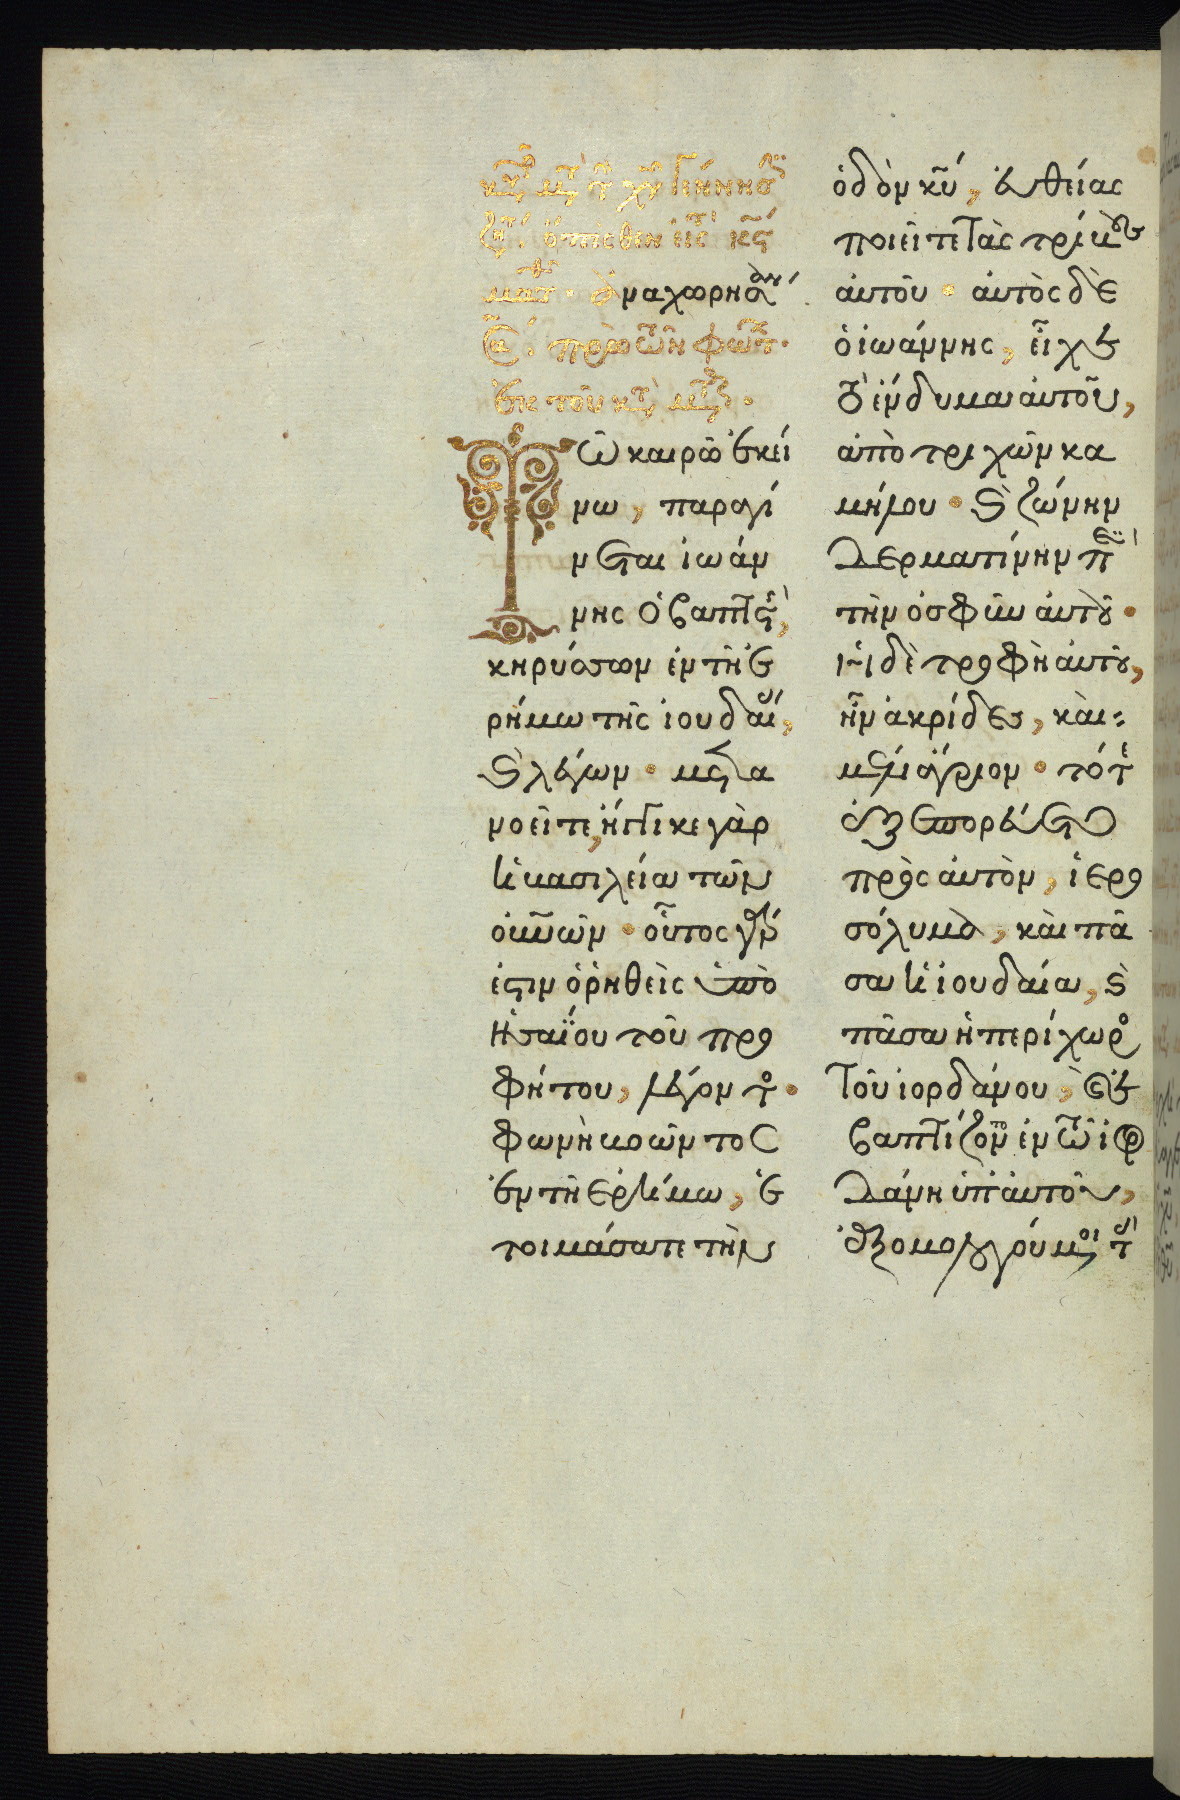 κυ μτ τ χυ γεννησ
ζητ ὄπισθεν εἰς κς
ματ · ἀναχωρησάν
Σα πρὸ τῶν φώτ ·
ἐκ τοῦ κτ μτ ·
Τῶ καιρῶ ἐκεί
νω, παραγί
νεται ἰωάν
νης ὁ βαπτιστ,
κηρύσσων ἐν τῆ ἐ
ρήμω τῆς ἰουδαί,
καὶ λέγων · μετα
νοεῖτε, ἤγγικε γὰρ
ἡ βασιλεία τῶν
οὐνῶν · οὗτος γάρ
ἐστιν ὁ ῥηθεὶς ὑπὸ
Ἠσαΐου τοῦ προ
φήτου, λέγοντ ·
φωνὴ βοῶντος
ἐν τῆ ἐρήμω, ἐ
τοιμάσατε τὴν
ὁδὸν κυ, εὐθείας
ποιεῖτε τὰς τρίβους
αὐτοῦ · αὐτὸς δὲ
ὁ ἰωάννης, εἶχε
τὸ ἔνδυμα αὐτοῦ,
ἀπὸ τριχῶν κα
μήλου · καὶ ζώνην
δερματίνην περὶ
τὴν ὀσφῦν αὐτοῦ ·
ἡ δὲ τροφὴ αὐτοῦ,
ἦν ἀκρίδες, καὶ
μέλι ἄγριον · τότε
ἐξεπορεύετο
πρὸς αὐτὸν, ἱερο
σόλυμα, καὶ πᾶ
σα ἡ ἰουδαία, καὶ
πᾶσα ἡ περίχωρο
τοῦ ἰορδάνου, καὶ ἐ
βαπτίζοντο ἐν τῶ ἰορ
δάνη ὑπ' αὐτοῦ,
ἐξομολογούμενοι τὰ